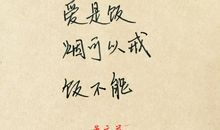 爱是饭
烟可以戒
饭不能